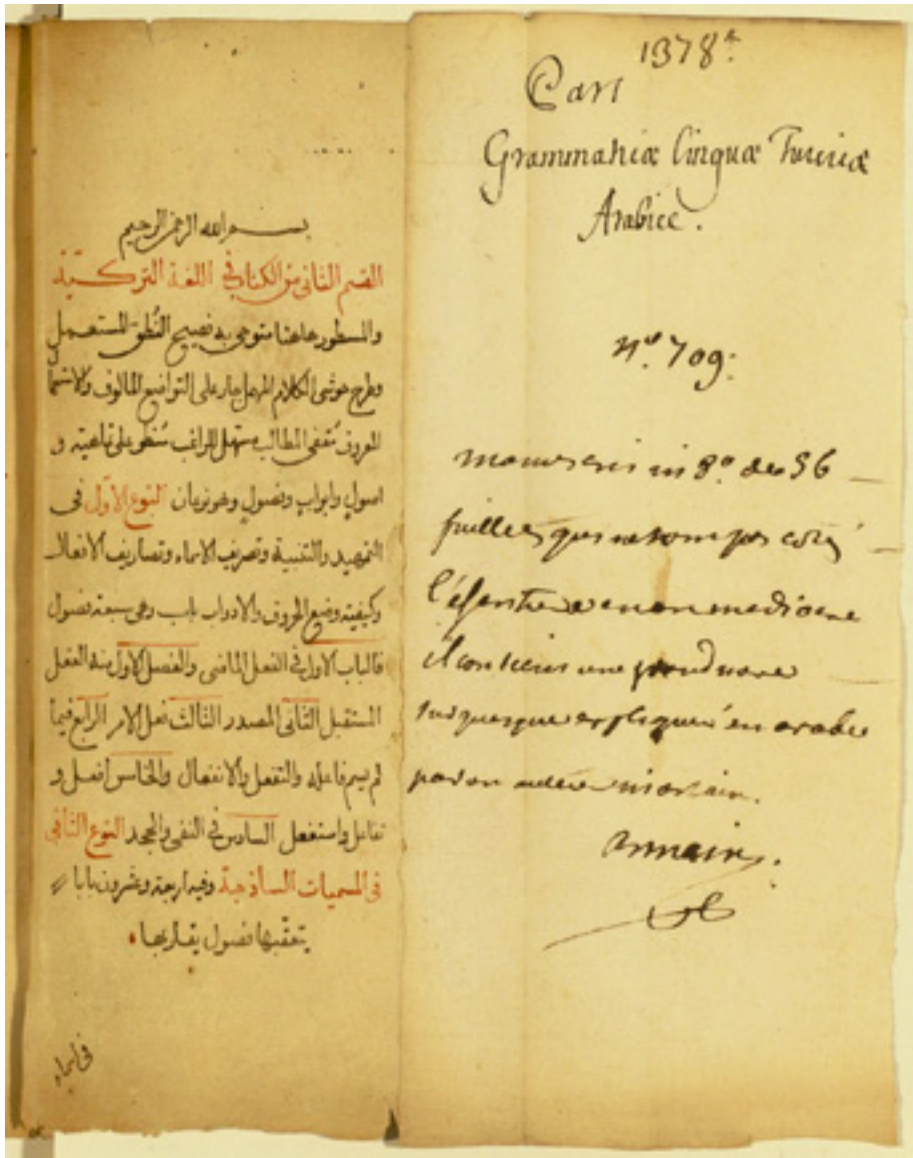 بسم الله الرحمن الرحيم
القسم الثاني من الكتاب في اللغة التركية
والمسطور هاهنا متوخى به فصيح النطق المستعمل
وطرح حوشي الكلام المهمل جار على التواضع المألوف والاستما
المعروف المطالب للراغب و
اصول وابواب وفصول وهو نوعان النوع الاول في
التمهيد والتنبيه وتصريف الاسماء وتصاريف الافعال
وكيفية وضع الحروف والادوات باب وهي سبعة فصول
فالباب الاول في الفعل الماضي والفصل الاول منه الفعل
المستقبل الثاني المصدر الثالث فعل الامر الرابع فيما
لم يسم فاعله والتفعل والانفعال والخامس افعل و
تفاعل واستفعل السادس في النفي والجحد النوع الثاني
في المسميات الساذجة وفيه اربعة وعشرون بابا
يتعقبها فصول يقاربها
1378 A.
Grammaticæ linguæ Turcicæ
Arabice.
N.º 709:
manuscrit in 8º de 56
feuillets qui ne sont pas
l'écriture en est mediocre
il contient une grammaire
turque expliquée en arabe
par un auteur incertain.
Armain.